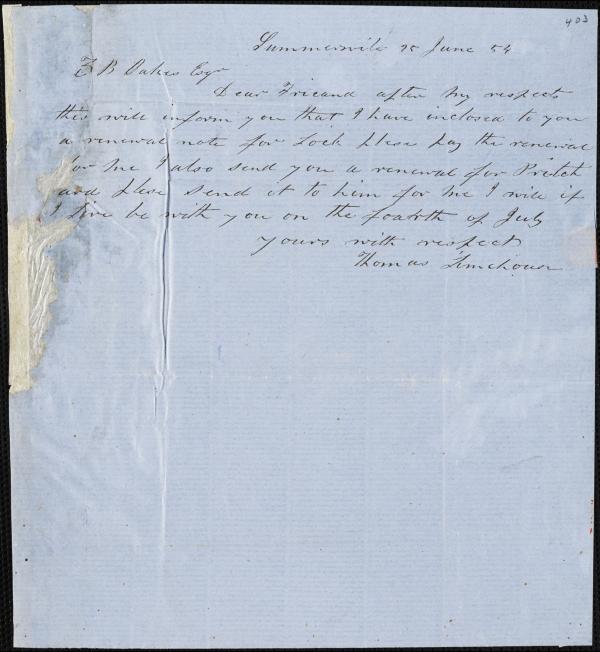 403
Summervile 25 June 54
Z B Oakes Esqr
Dear Frieand after my respects
this will inform you that I have inclosed to you
a renewal note for Lock plese pay the renewal
for me I also send you a renewal for
and plese send it to him for me I will if
I live be with you on the fourth of July
yours with respect
Thomas Limehouse